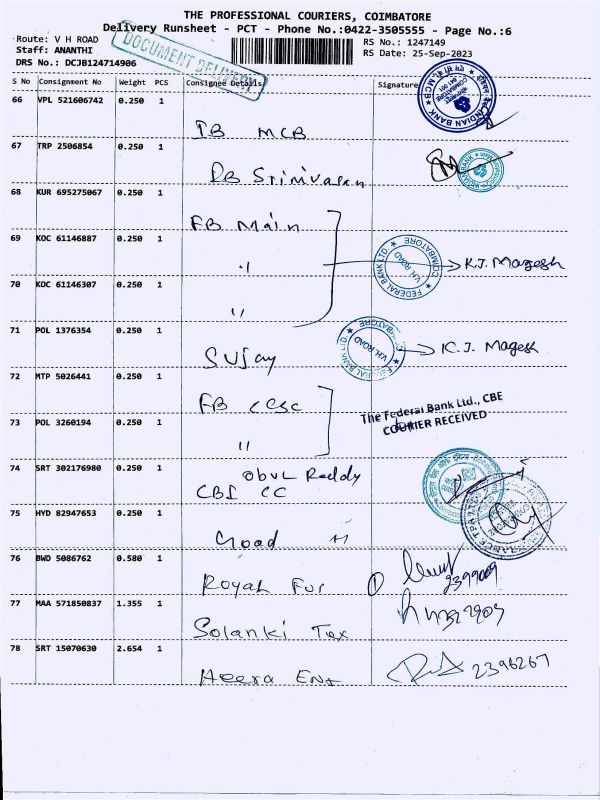 THE PROFESSIONAL COURIERS, COIMBATORE
Delivery Runsheet - PCT - Phone No.:0422-3505555 - Page No.:6
Route: V H ROAD
Staff: ANANTHI
DRS No.: DCJB124714906
DOCUMENT DELIVERY
RS No.: 1247149
RS Date: 25-Sep-2023
S No Consignment No Weight PCS Consignee Details Signature
66 VPL 521606742 0.250 1
IB MCB
INDIAN BANK MCB
67 TRP 2506854 0.250 1
RB Srinivasan
68 KUR 695275067 0.250 1
FB Main
69 KOC 61146887 0.250 1
"
FEDERAL BANK LTD. COIMBATORE
V.H. ROAD
K.J. Magesh
70 KOC 61146307 0.250 1
"
71 POL 1376354 0.250 1
Sujay
FEDERAL BANK LTD. COIMBATORE
V.H. ROAD
K.J. Magesh
72 MTP 5026441 0.250 1
FB CCSC
The Federal Bank Ltd., CBE
COURIER RECEIVED
73 POL 3260194 0.250 1
"
74 SRT 302176980 0.250 1
Obul Reddy
CBI CC
75 HYD 82947653 0.250 1
76 BWD 5086762 0.580 1
Royal Fur
2399009
77 MAA 571850837 1.355 1
Solanki Tex
78 SRT 15070630 2.654 1
Heera Ent
2396267